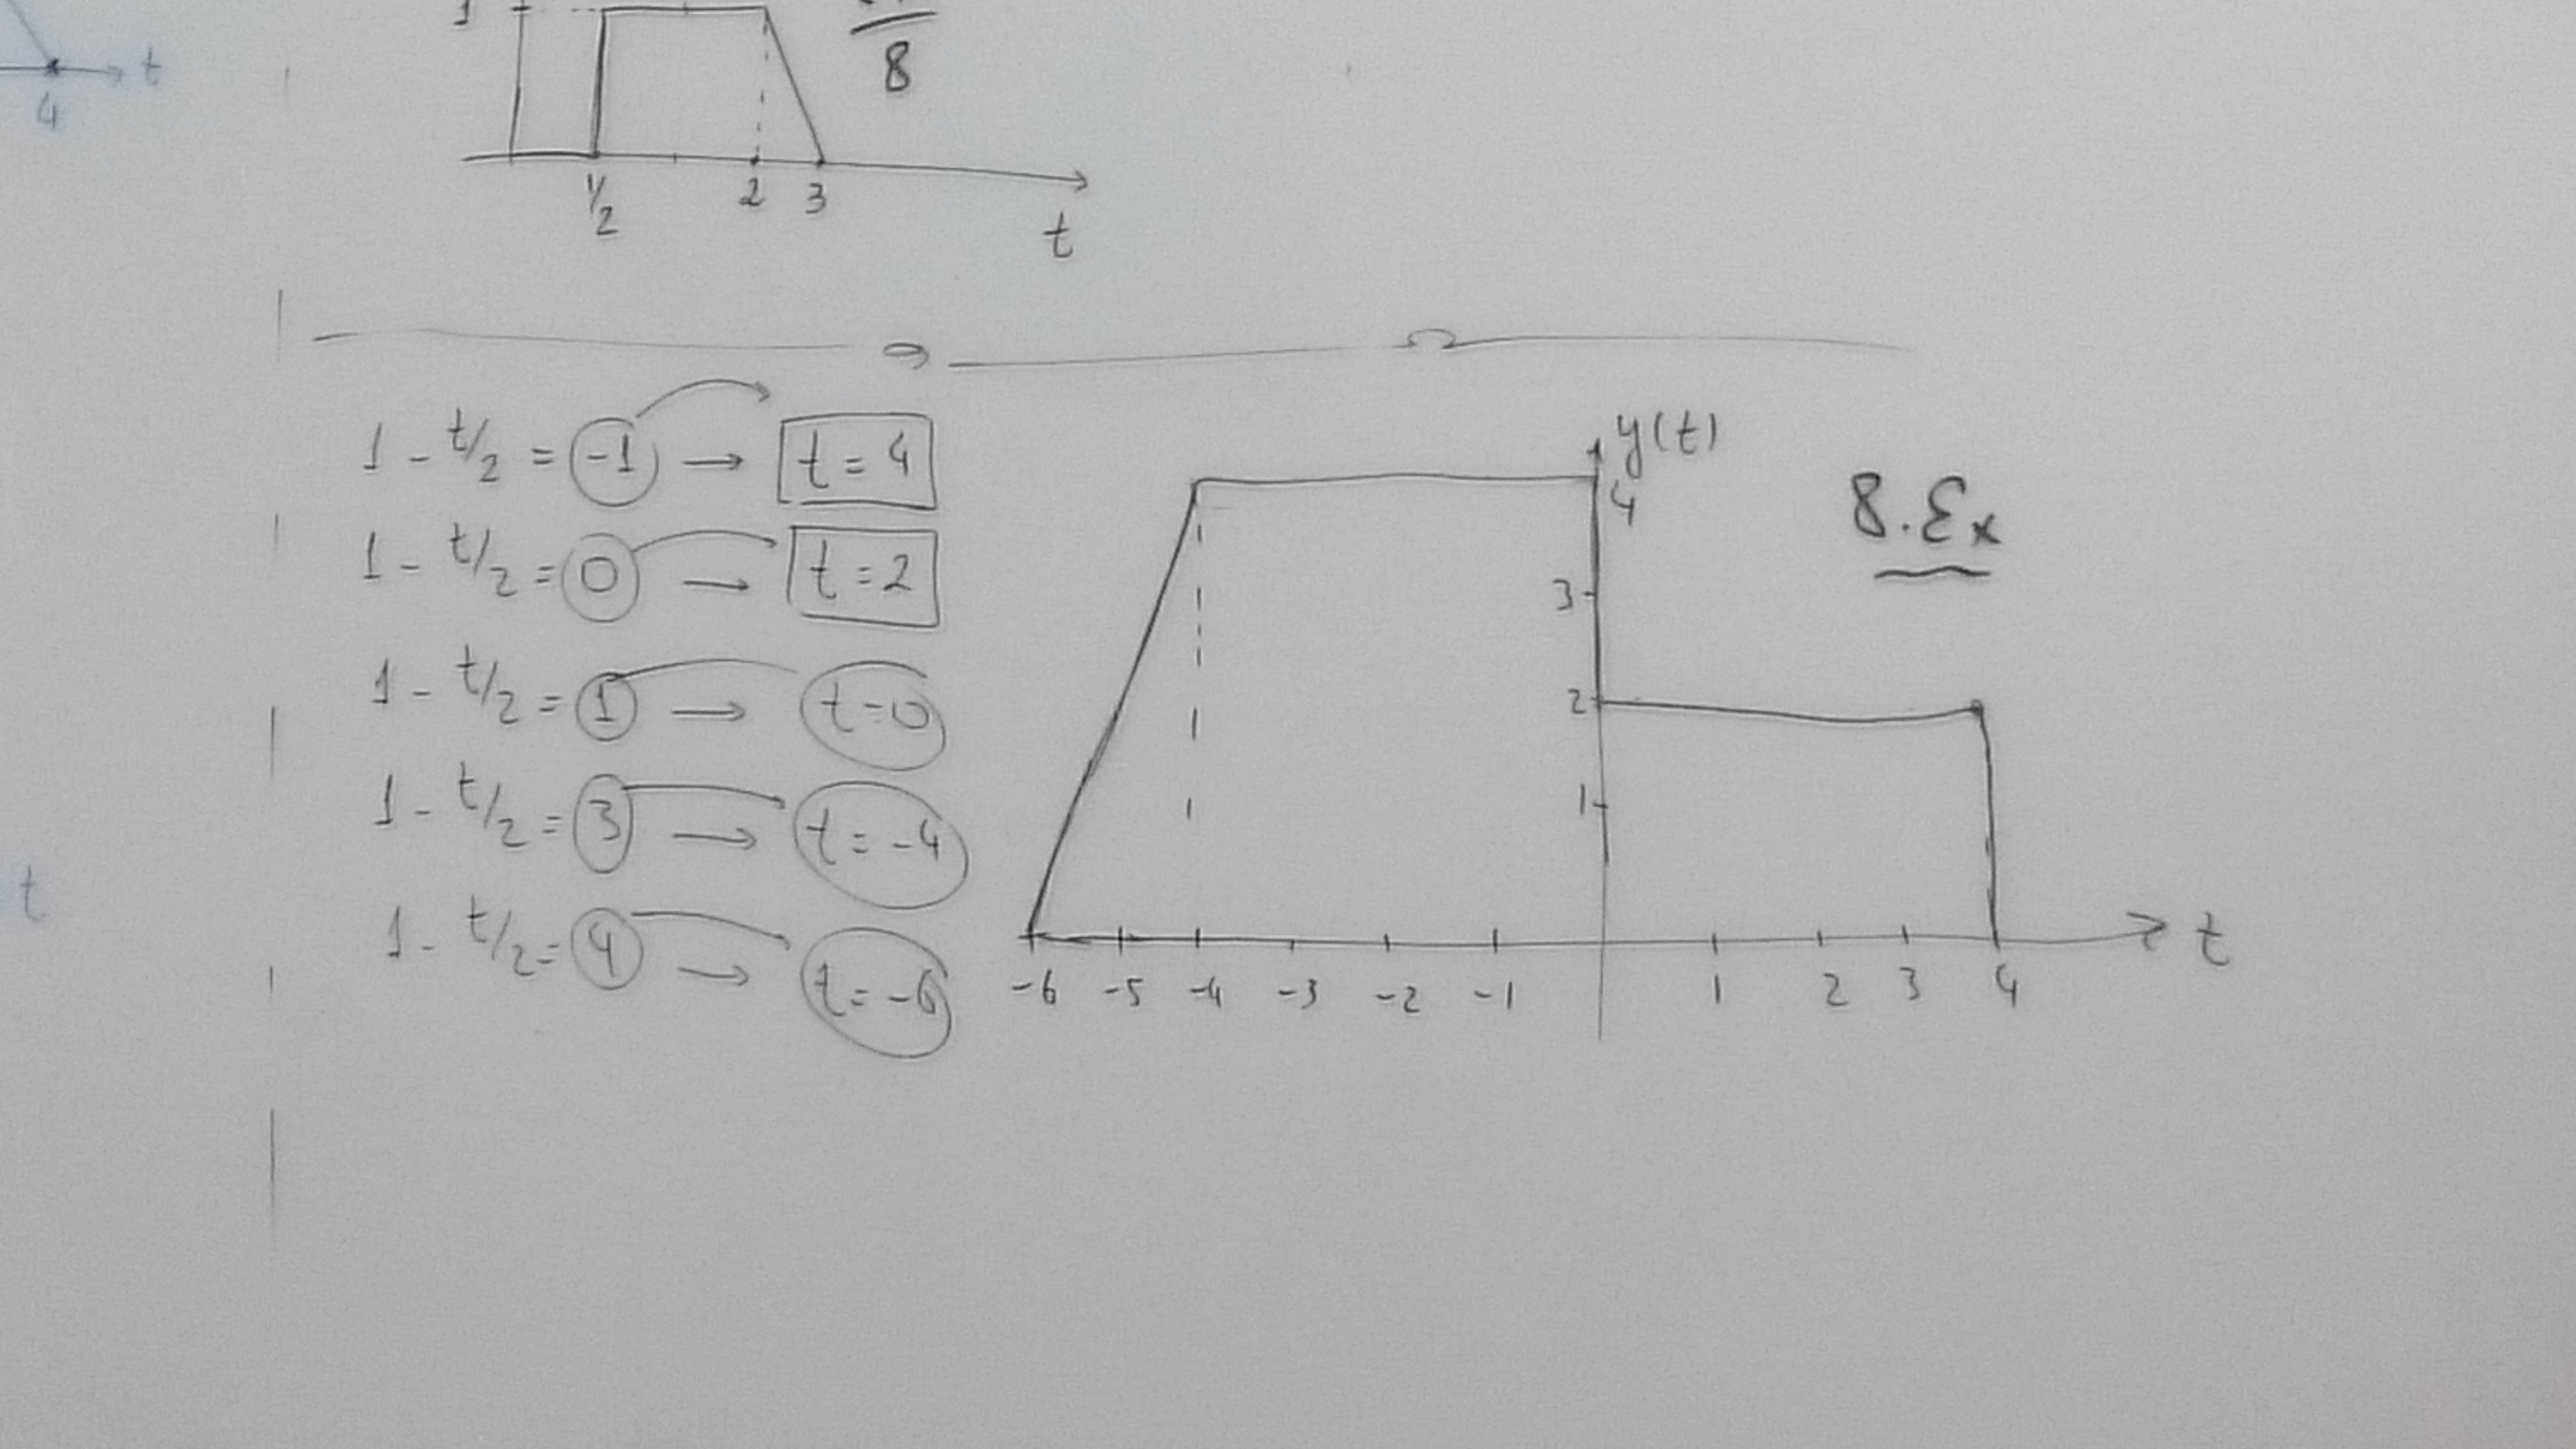 t
4
1
8
1/2 2 3
t
1 - t/2 = -1 → t = 4
1 - t/2 = 0 → t = 2
1 - t/2 = 1 → t = 0
1 - t/2 = 3 → t = -4
1 - t/2 = 4 → t = -6
y(t)
4
3
2
1
-6 -5 -4 -3 -2 -1 1 2 3 4
t
8.Ɛx
t